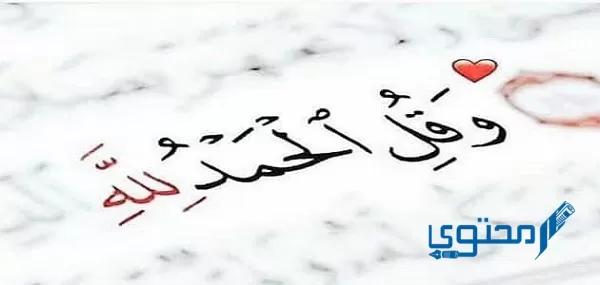 وَقُلِ الْحَمْدُ لِلَّهِ
محتوي